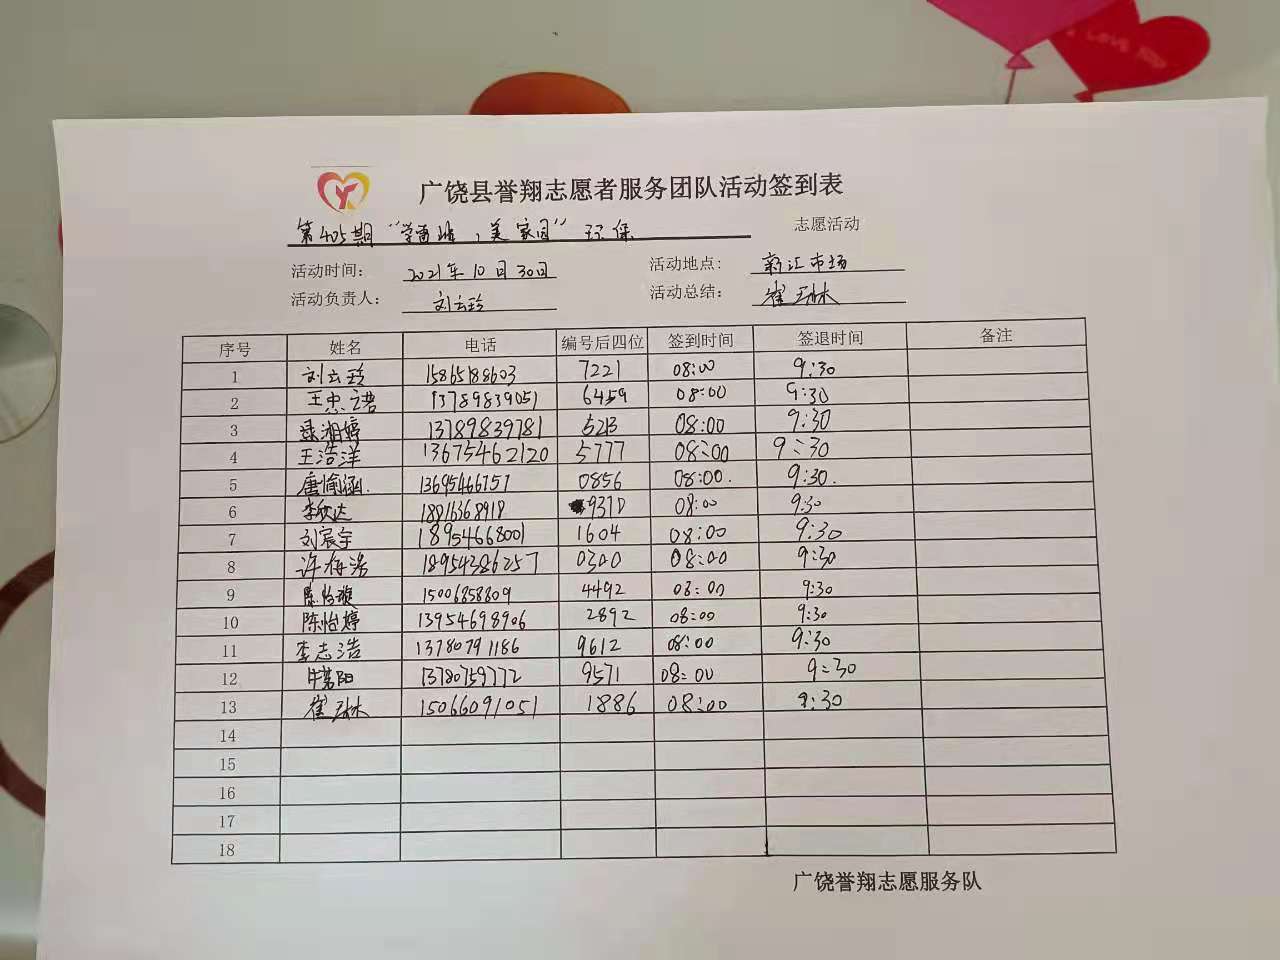 I LOVE YOU
广饶县誉翔志愿者服务团队活动签到表
第405期“学雷锋，美家园”环保 志愿活动
活动时间： 2021年10月30日 活动地点： 新江市场
活动负责人： 刘云玲 活动总结： 崔琳
序号 姓名 电话 编号后四位 签到时间 签退时间 备注
1 刘云玲 15865188603 7221 08:00 9:30
2 王忠诺 13789839051 6459 08:00 9:30
3 湘婷 13789839781 5213 08:00 9:30
4 王浩洋 13675462120 5777 08:00 9:30
5 唐愉涵 13695466757 0856 08:00 9:30
6 李欣达 18816368918 08:00 9:30
7 刘宸宇 18954668001 1604 08:00 9:30
8 许 浩 18954386257 0300 08:00 9:30
9 陈怡璇 15006858809 4492 08:00 9:30
10 陈怡婷 13954698906 2892 08:00 9:30
11 李志浩 13780791186 9612 08:00 9:30
12 阳 13780759772 9571 08:00 9:30
13 崔琳 15066091051 1886 08:00 9:30
14
15
16
17
18
广饶誉翔志愿服务队